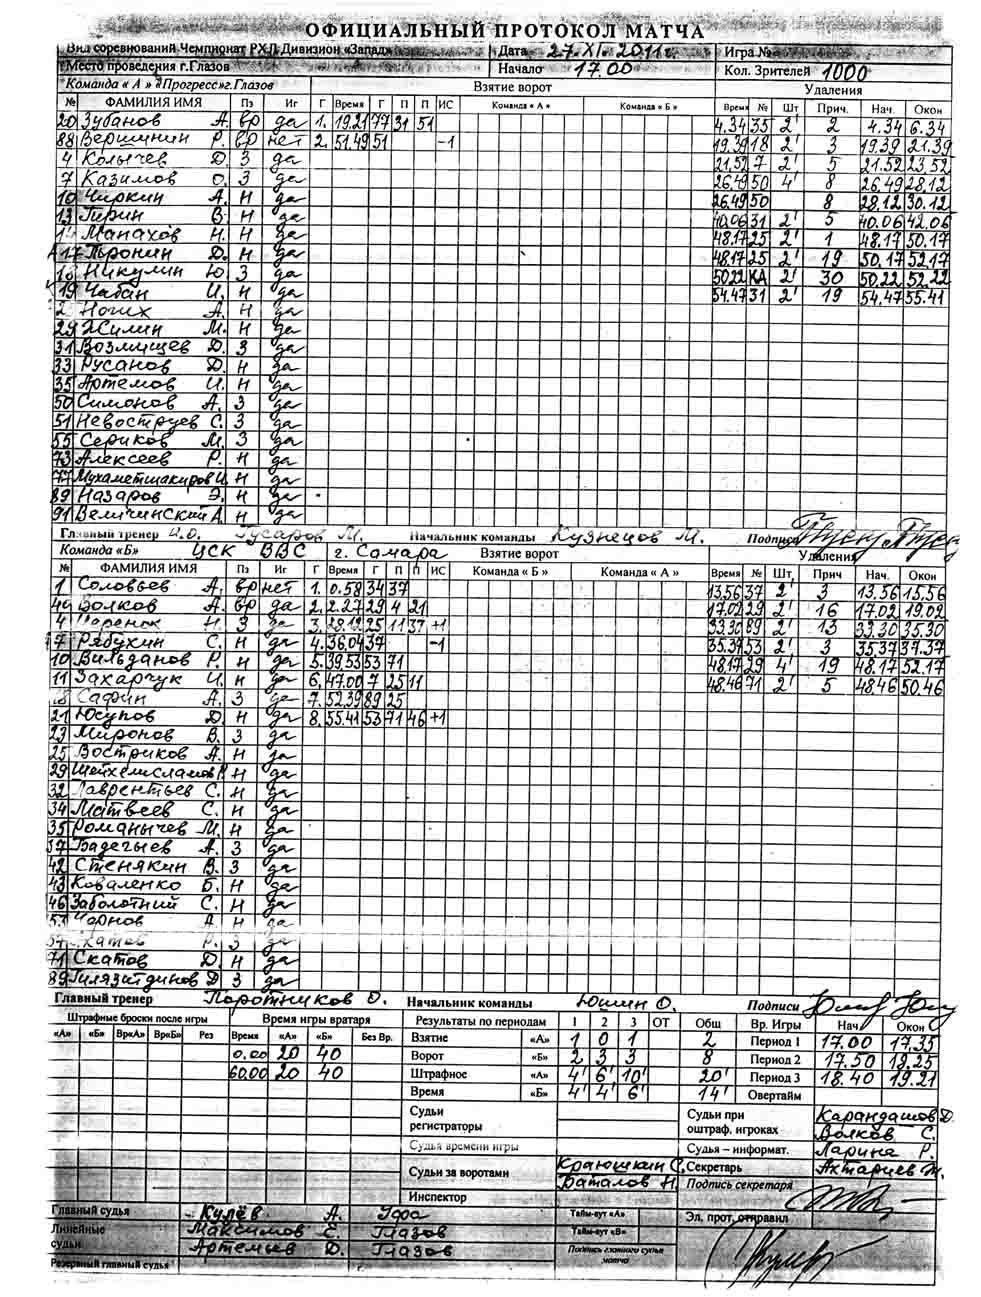 ОФИЦИАЛЬНЫЙ ПРОТОКОЛ МАТЧА
Вид соревнований Чемпионат РХЛ Дивизион «Запад» Дата 27.XI.2011г. Игра №
Место проведения г.Глазов Начало 17.00 Кол. Зрителей 1000
Команда « А » «Прогресс» г.Глазов Взятие ворот Удаления
№ ФАМИЛИЯ ИМЯ Пз Иг Г Время Г П П ИС Команда « А » Команда « Б » Время № Шт Прич. Нач. Окон
20 Зубанов А. вр да 1. 19.21 77 31 51 4.34 35 2' 2 4.34 6.34
88 Вершинин Р. вр нет 2. 51.49 51 -1 19.39 18 2' 3 19.39 21.39
4 Колычев Д. З да 21.52 7 2' 5 21.52 23.52
7 Казимов О. З да 26.49 50 4' 8 26.49 28.12
10 Чиркин А. Н да 26.49 50 8 28.12 30.12
13 Гирин В. Н да 40.06 31 2' 5 40.06 42.06
Манахов Н. Н да 48.17 25 2' 1 48.17 50.17
А 17 Пронин Д. Н да 48.17 25 2' 19 50.17 52.17
18 Никулин Ю. З да 50.22 КА 2' 30 50.22 52.22
19 Чабан И. Н да 54.47 31 2' 19 54.47 55.41
Ногих А. Н да
29 Жилин М. Н да
31 Возмищев Д. З да
33 Русанов Д. Н да
35 Артемов И. Н да
50 Симонов А. З да
51 Невоструев С. З да
55 Сериков М. З да
73 Алексеев Р. Н да
77 Мухаметшакиров И. Н да
89 Назаров Э. Н да
91 Величинский А. Н да
Главный тренер И.О. Гусаров М. Начальник команды Кузнецов М. Подписи
Команда «Б» ЦСК ВВС г. Самара Взятие ворот Удаления
№ ФАМИЛИЯ ИМЯ Пз Иг Г Время Г П П ИС Команда « Б » Команда « А » Время № Шт. Прич Нач. Окон
1 Соловьев А. вр нет 1. 0.58 34 37 13.56 37 2' 3 13.56 15.56
Волков А. вр да 2. 2.27 29 4 21 17.02 29 2' 16 17.02 19.02
4 Царенок Н. З да 3. 28.12 25 11 37 +1 33.30 89 2' 13 33.30 35.30
7 Рябухин С. Н да 4. 36.04 37 -1 35.37 53 2' 3 35.37 37.37
10 Вильданов Р. Н да 5. 39.53 53 71 48.17 29 4' 19 48.17 52.17
11 Захарчук И. Н да 6. 47.00 7 25 11 48.46 71 2' 5 48.46 50.46
18 Сафин А. З да 7. 52.39 89 25
21 Юсупов Д. Н да 8. 55.41 53 71 46 +1
23 Миронов В. З да
25 Востриков А. Н да
29 Шейхелисламов Р. Н да
32 Лаврентьев С. Н да
34 Матвеев С. Н да
35 Романычев М. Н да
37 Бадегыев А. З да
42 Стенякин В. З да
43 Коваленко Б. Н да
46 Заболотний С. Н да
53 Чернов А. Н да
Р. З да
71 Скатов Д. Н да
89 Гилязитдинов Д З да
Главный тренер Паротников О. Начальник команды Юшин О. Подписи
Штрафные броски после игры Время игры вратаря Результаты по периодам 1 2 3 ОТ Общ Вр. Игры Нач Окон
«А» «Б» Вр«А» Вр«Б» Рез Время «А» «Б» Без Вр. Взятие «А» 1 0 1 2 Период 1 17.00 17.35
0.00 20 40 Ворот «Б» 2 3 3 8 Период 2 17.50 18.25
60.00 20 40 Штрафное «А» 4' 6' 10' 20' Период 3 18.40 19.21
Время «Б» 4' 4' 6' 14' Овертайм
Судьи регистраторы Судьи при оштраф. игроках Карандашов Д. Волков С.
Судья времени игры Судья – информат. Ларина Р.
Судьи за воротами Краюшкин С. Баталов Н. Секретарь Ахтариев М.
Подпись секретаря
Инспектор
Главный судья Кулёв А. Уфа Тайм-аут «А» Эл. прот. отправил
Линейные судьи Максимов Е. Глазов Тайм-аут «В»
Артемьев Д. Глазов Подпись главного судьи матча
Резервный главный судья